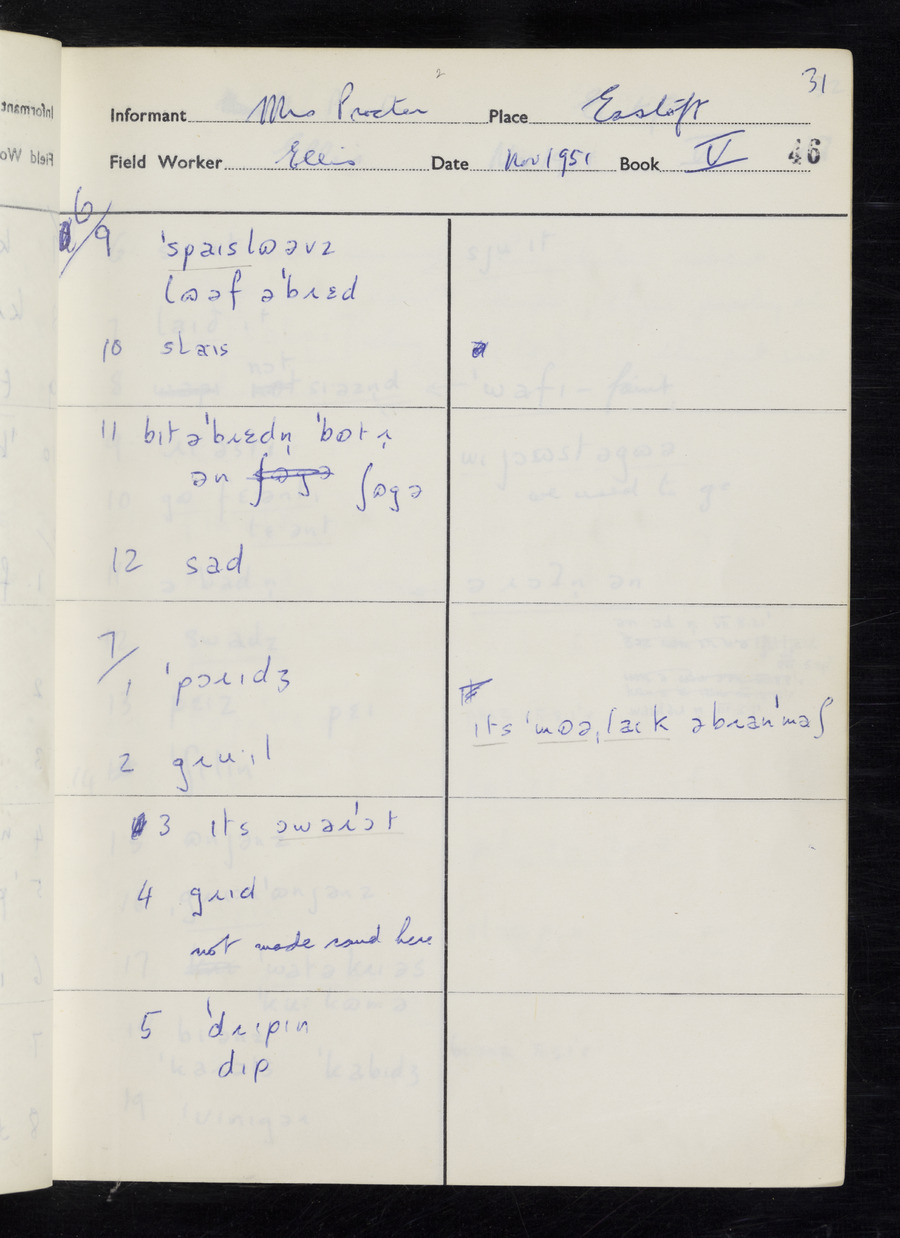 31
Informant Mrs Procter Place Eastoft
Field Worker Ellis Date Nov 1951 Book V 46
6/
9 ˈspaɪslɷəvz
lɷəf əˈbɹɛd
10 slaɪs
11 bɪt əˈbɹɛdn̩ ˈbɷtɹ̩
ən ʃɷgə
12 sad
7/
1 ˈpɔɹɪdʒ
ɪts ˈmɷəˌlaɪk əbɹanˈmaʃ
2 gɹuˑɪl
3 ɪts
4 gɹɪd
not made round here
5 ˈdɹɪpɪn
dɪp